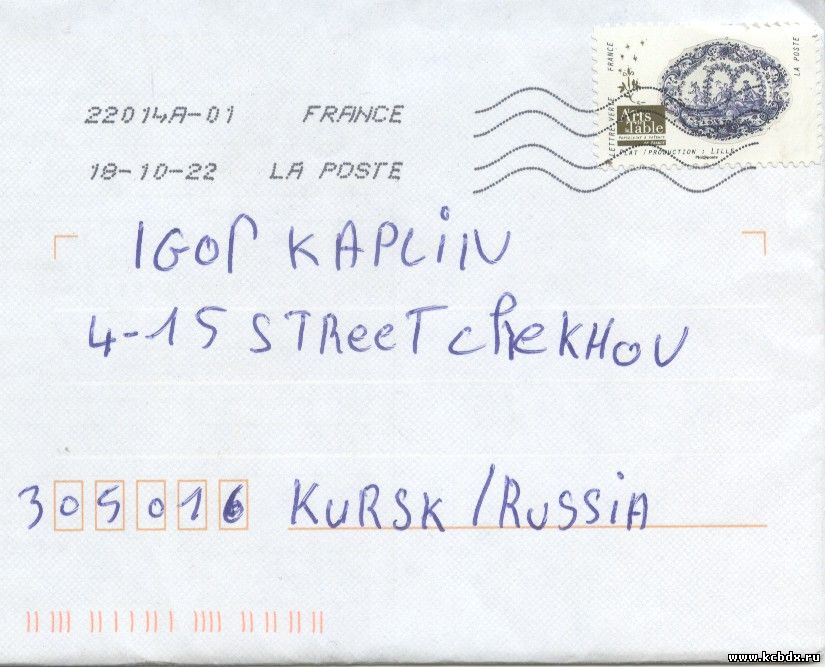 22014A-01 FRANCE
18-10-22 LA POSTE
LETTRE VERTE FRANCE
LA POSTE
Arts
de la Table
PLAT (PRODUCTION : LILLE)
IGOR KAPLIIN
4-15 STReeT cheKHOV
305016 KURSK / RUSSiA
www.kcbdx.ru